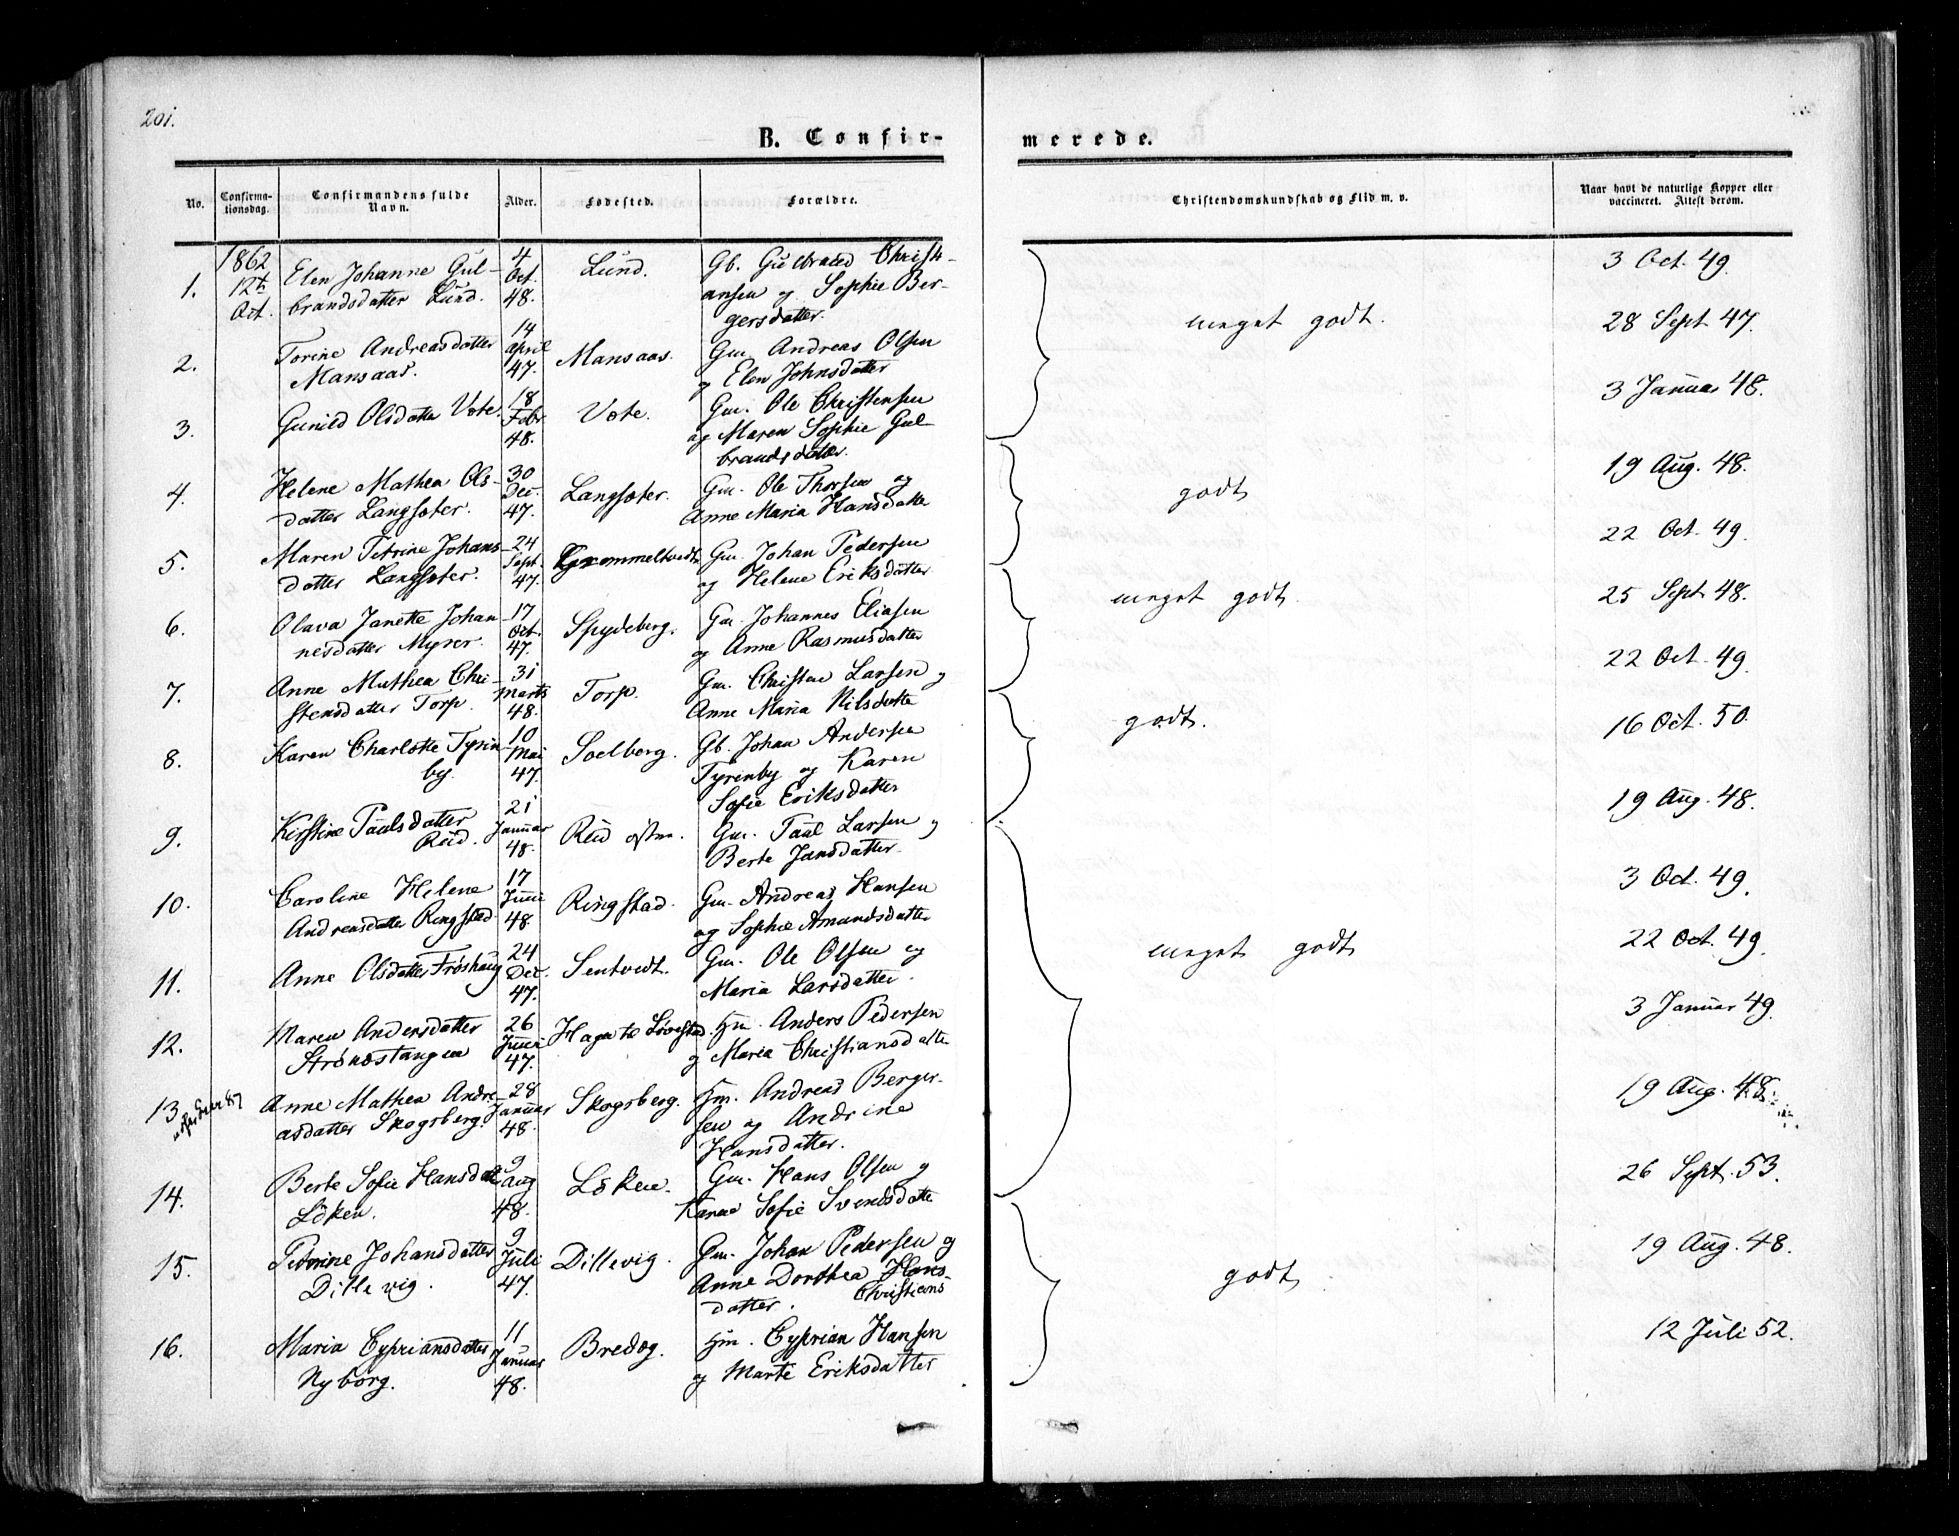 201.
B. Confir-
merede.
No.
Confirma-
tionsdag.
Confirmandens fulde
Navn.
Alder.
Fødested.
Forældre.
Christendomskundskab og Flid m. v.
Naar havt de naturlige Kopper eller
vaccineret. Attest derom.
1862
12te
Oct.
1.
Elen Johanne Gul-
brandsdatter Lund.
4
Oct.
48.
Lund.
Gb. Gulbrand Christi-
ansen og Sophie Ber-
gersdatter.
3 Oct. 49.
2.
Torine Andreasdatter
Mansaas.
14
April
47.
Mansaas.
Gm. Andreas Olsen
og Elen Johnsdatter
meget godt.
28 Sept 47.
3.
Gunild Olsdatter Vote.
18
Febr
48.
Vote.
Gm. Ole Christensen
og Maren Sophie Gul-
brandsdatter.
3 Januar 48.
4.
Helene Mathea Ols-
datter Langsæter.
30
Dec.
47.
Langsæter.
Gm. Ole Thorsen og
Anne Maria Hansdatter
godt
19 Aug. 48.
5.
Maren Petrine Johans-
datter Langsæter.
24
Sept.
47.
Grommeltvedt
Gm. Johan Pedersen
og Helene Eriksdatter
22 Oct. 49.
6.
Olava Janette Johan-
nesdatter Myrer.
17
Oct.
47.
Spydeberg.
Gm. Johannes Eliasen
og Anne Rasmusdatter
meget godt.
25 Sept 48.
7.
Anne Mathea Chri-
stensdatter Torp.
31
Marts
48.
Torp.
Gm. Christen Larsen og
Anne Maria Nilsdatter
22 Oct. 49.
8.
Karen Charlotte Tyrin-
by.
10
Mai
47.
Soelberg.
Gb. Johan Andersen
Tyrinby og Karen
Sofie Eriksdatter
godt.
16 Oct. 50.
9.
Kirstine Paulsdatter
Rud.
21
Januar
48.
Rud østre.
Gm. Paul Larsen og
Berte Jansdatter.
19 Aug. 48.
10.
Caroline Helene
Andreasdatter Ringstad.
17
Juni
48.
Ringstad.
Gm. Andreas Hansen
og Sophie Amundsdatter
3 Oct. 49.
11.
Anne Olsdatter Frøshaug
24
Dec.
47.
Sentvedt.
Gm. Ole Olsen og
Maria Larsdatter.
meget godt
22 Oct. 49.
12.
Maren Andersdatter
Strønæstangen
26
Juni
47.
Hagen til Løvestad.
Hm. Anders Pedersen
og Maria Christiansdatter
3 Januar 49.
13
Anne Mathea Andre-
asdatter Skogsberg.
28
Januar
48.
Skogsberg.
Hm. Andreas Berger-
sen og Andrine
Hansdatter.
19 Aug. 48.
14.
Berte Sofie Hansdatter
Löken.
9
Aug
48.
Löken.
Gm. Hans Olsen og
Karen Sofie Svendsdatter
26 Sept. 53.
15.
Petrine Johansdatter
Dillevig.
9
Juli
47.
Dillevig.
Gm. Johan Pedersen og
Anne Dorthea Hans-
Christians-
datter.
godt
19 Aug. 48.
16.
Maria Cypriansdatter
Nyborg.
11
Januar
48.
Bredøg.
Hm. Cyprian Hansen
og Marte Eriksdatter
12 Juli 52.